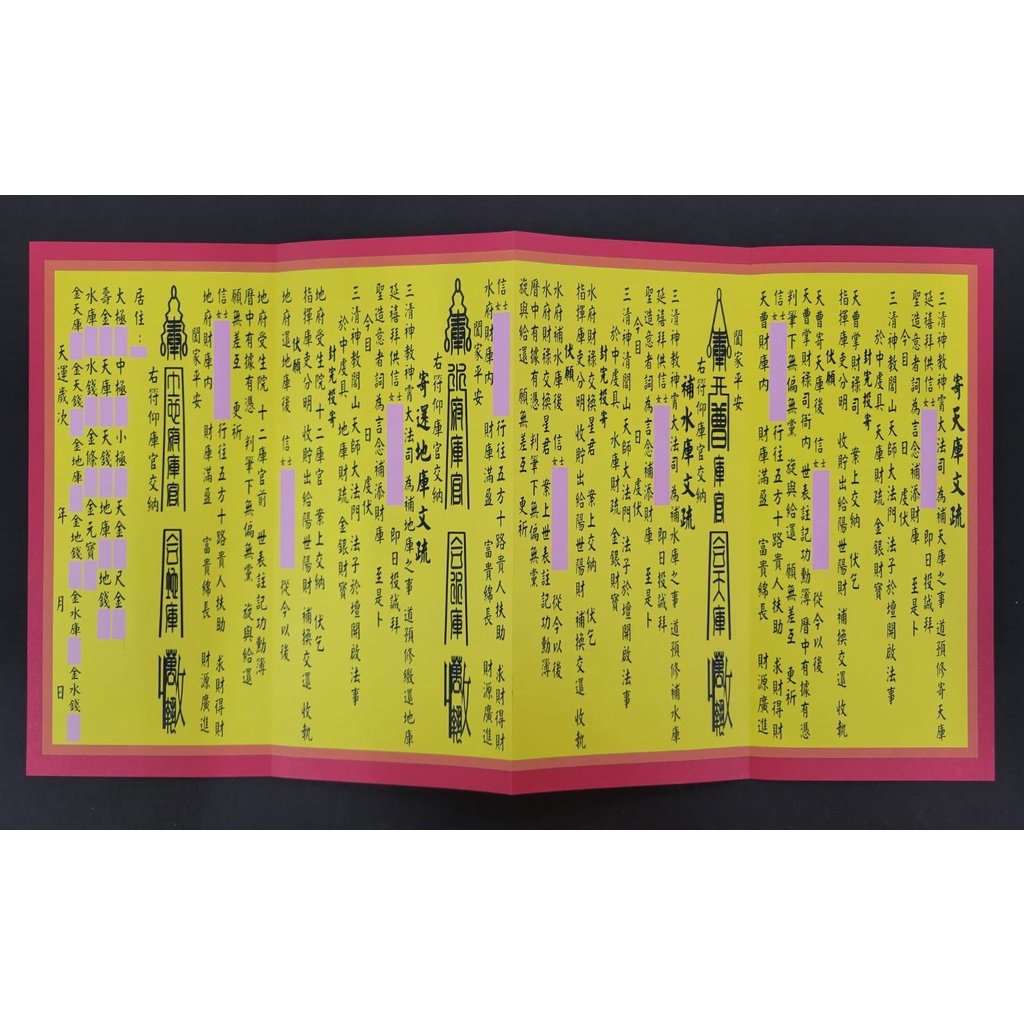 寄天庫文疏
三清神教神霄大法司 為補天庫之事 道預修寄天庫
延禧拜供信士女 即日投誠拜
聖造意者詞為言念補添財庫 至是卜
今目 日 虔伏
於中虔具 天庫財疏 金銀財寶
三清神教閭山天師大法門 法子於壇開啟法事
封完投寄
天曹掌財祿司 案上交納 伏乞
指揮庫吏分明 收貯出給陽世陽財 補換交還 收執
伏願
天曹寄天庫後 信士女 從今以後
天曹掌財祿司衙內 世表註記功勳簿 曆中有據有憑
判筆下無偏無黨 旋與給還 願無差互 更祈
信士女 行往五方十路貴人扶助 求財得財
天曹財庫內 財庫滿盈 富貴綿長 財源廣進
闔家平安
天曹庫官 合天庫
右符仰庫官交納
補水庫文疏
三清神教神霄大法司 為補水庫之事 道預修補水庫
延禧拜供信士女 即日投誠拜
聖造意者詞為言念補添財庫 至是卜
今目 日 虔伏
於中虔具 水庫財疏 金銀財寶
三清神清閭山天師大法門 法子於壇開啟法事
封完投寄
水府財祿交換星君 案上交納 伏乞
指揮庫吏分明 收貯出給陽世陽財 補換交還 收執
伏願
水府補水庫後 信士女 從今以後
水府財祿交換星君 案上世表註記功勳簿
曆中有據有憑 判筆下無偏無黨
旋與給還 願無差互 更祈
信士女 行往五方十路貴人扶助 求財得財
水府財庫內 財庫滿盈 富貴綿長 財源廣進
闔家平安
水府庫官 合水庫
右符仰庫官交納
寄還地庫文疏
三清神教神霄大法司 為補地庫之事 道預修繳還地庫
延禧拜供信士女 即日投誠拜
聖造意者詞為言念補添財庫 至是卜
今目 日 虔伏
於中虔具 地庫財疏 金銀財寶
三清神教閭山天師大法門 法子於壇開啟法事
封完投寄
地府受生院 十二庫官 案上交納 伏乞
指揮庫吏分明 收貯出給陽世陽財 補換交還 收執
伏願
地府還地庫後 信士女 從今以後
地府受生院 十二庫官前 世表註記功勳簿
曆中有據有憑 判筆下無偏無黨 旋與給還
願無差互 更祈
信士女 行往五方十路貴人扶助 求財得財
地府財庫內 財庫滿盈 富貴綿長 財源廣進
闔家平安
地府庫官 合地庫
右符仰庫官交納
居住：
大極 中極 小極 天金 尺金
壽金 天庫 天錢 地庫 地錢
水庫 水錢 金條 金元寶
金天庫 金天錢 金地庫 金地錢 金水庫 金水錢
天運歲次 年 月 日